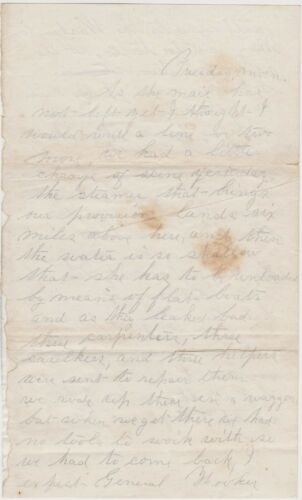 Friday morn.
As the mail has
not left yet I thought I
would write a line or two
more, we had a little
change of scene yesterday
the steamer that brings
our provisions lands six
miles above here, and then
the water is so shallow
that she has to be unloaded
by means of flat boats
and as they leaked bad
three carpenters, three
caulkers, and three helpers
were sent to repair them
we rode up there in a waggon
but when we got there we had
no tools to work with so
we had to come back I
expect General Hooker